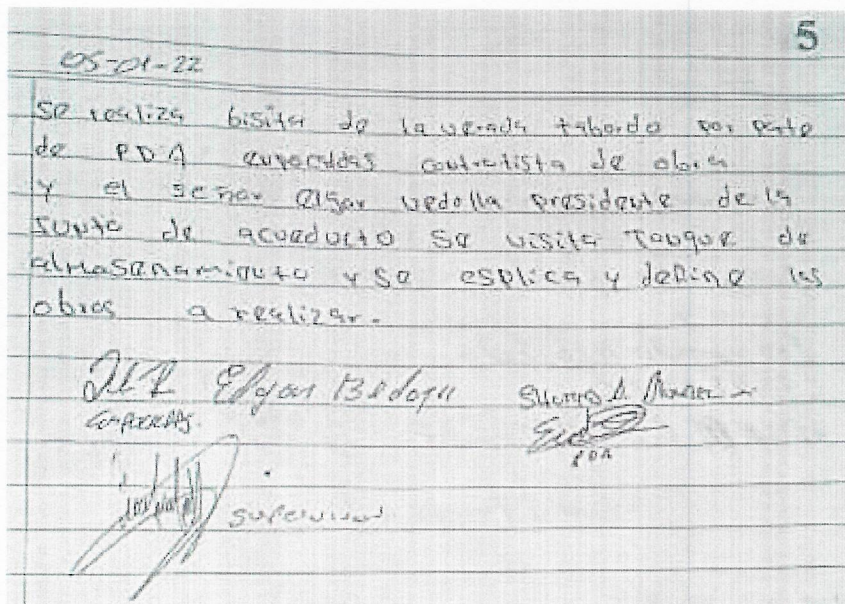 5
05-01-22
se realiza bisita de la vereda tabordo por parte
de PDA empocaldas contratista de obra
y el señor edgar vedolla presidente de la
Junta de acueducto se visita Tanque de
almasenamiento y se esplica y define las
obras a realizar.
Edgar Bedoya
PDA
supervisor